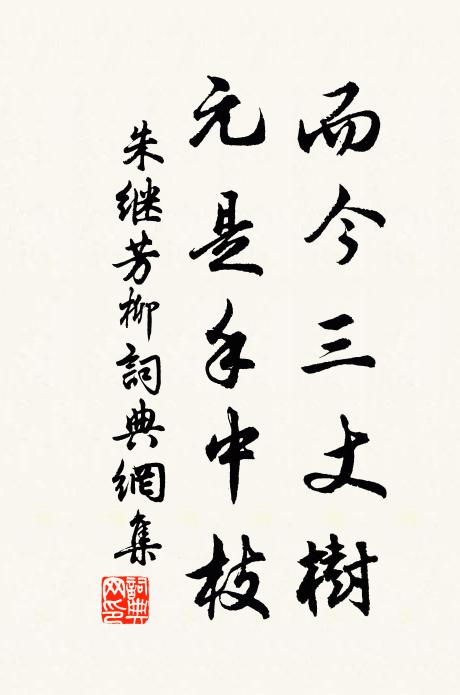 而今三丈樹
元是手中枝
朱继芳柳詞典網集
詞典網印